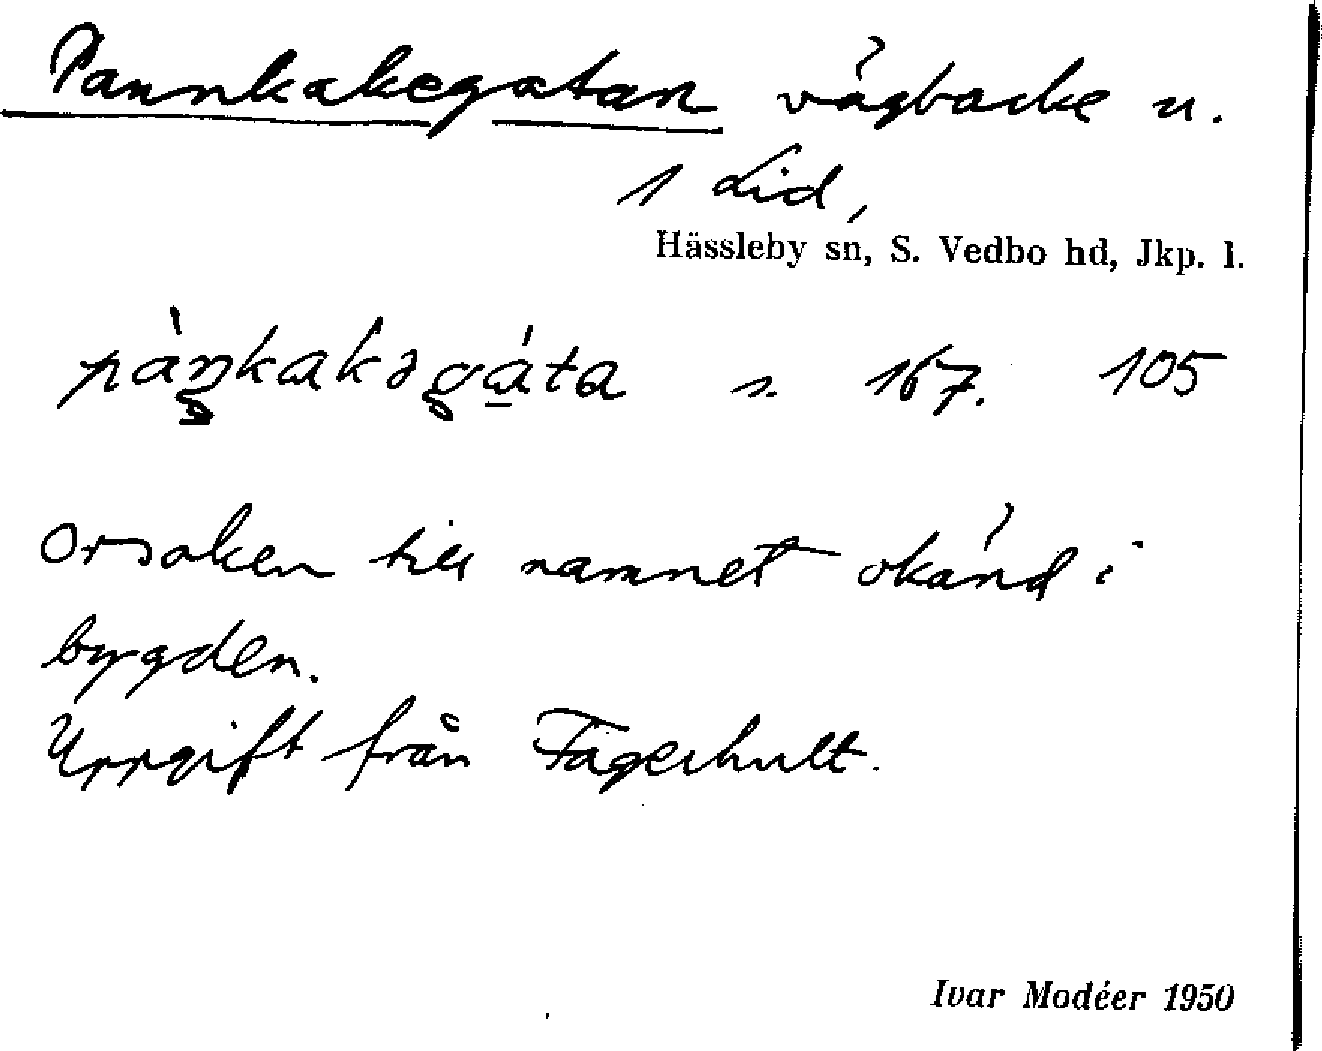 Pannkakegatan vägbacke u.
1 Lid,
Hässleby sn, S. Vedbo hd, Jkp. l.
pàŋkakəgáta n. 167. 105
Orsaken till namnet okänd i
bygden.
Uppgift från Fagerhult.
Ivar Modéer 1950